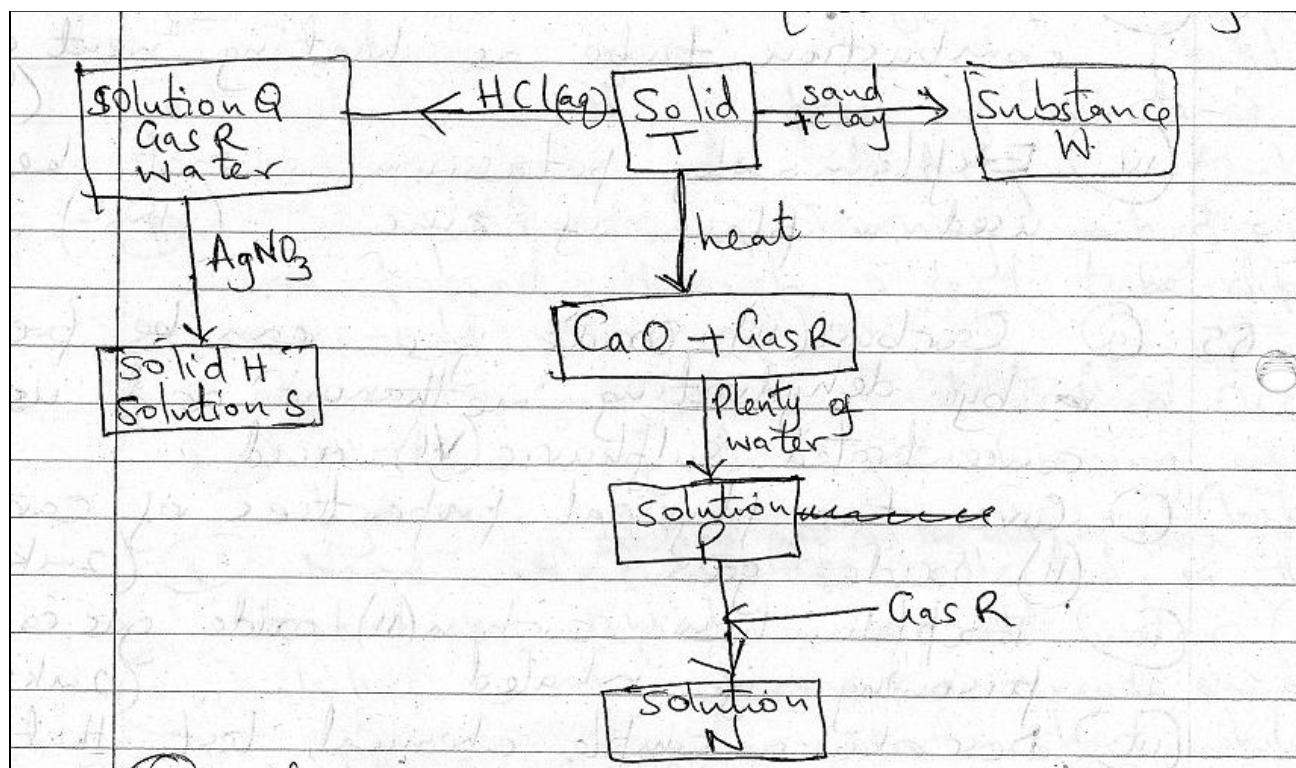 solution Q
Gas R
water
HCl(aq)
Solid
T
sand
+clay
Substance
W.
AgNO3
heat
Solid H
Solution S
CaO + Gas R
Plenty of
water
Solution
P
Gas R
Solution
N